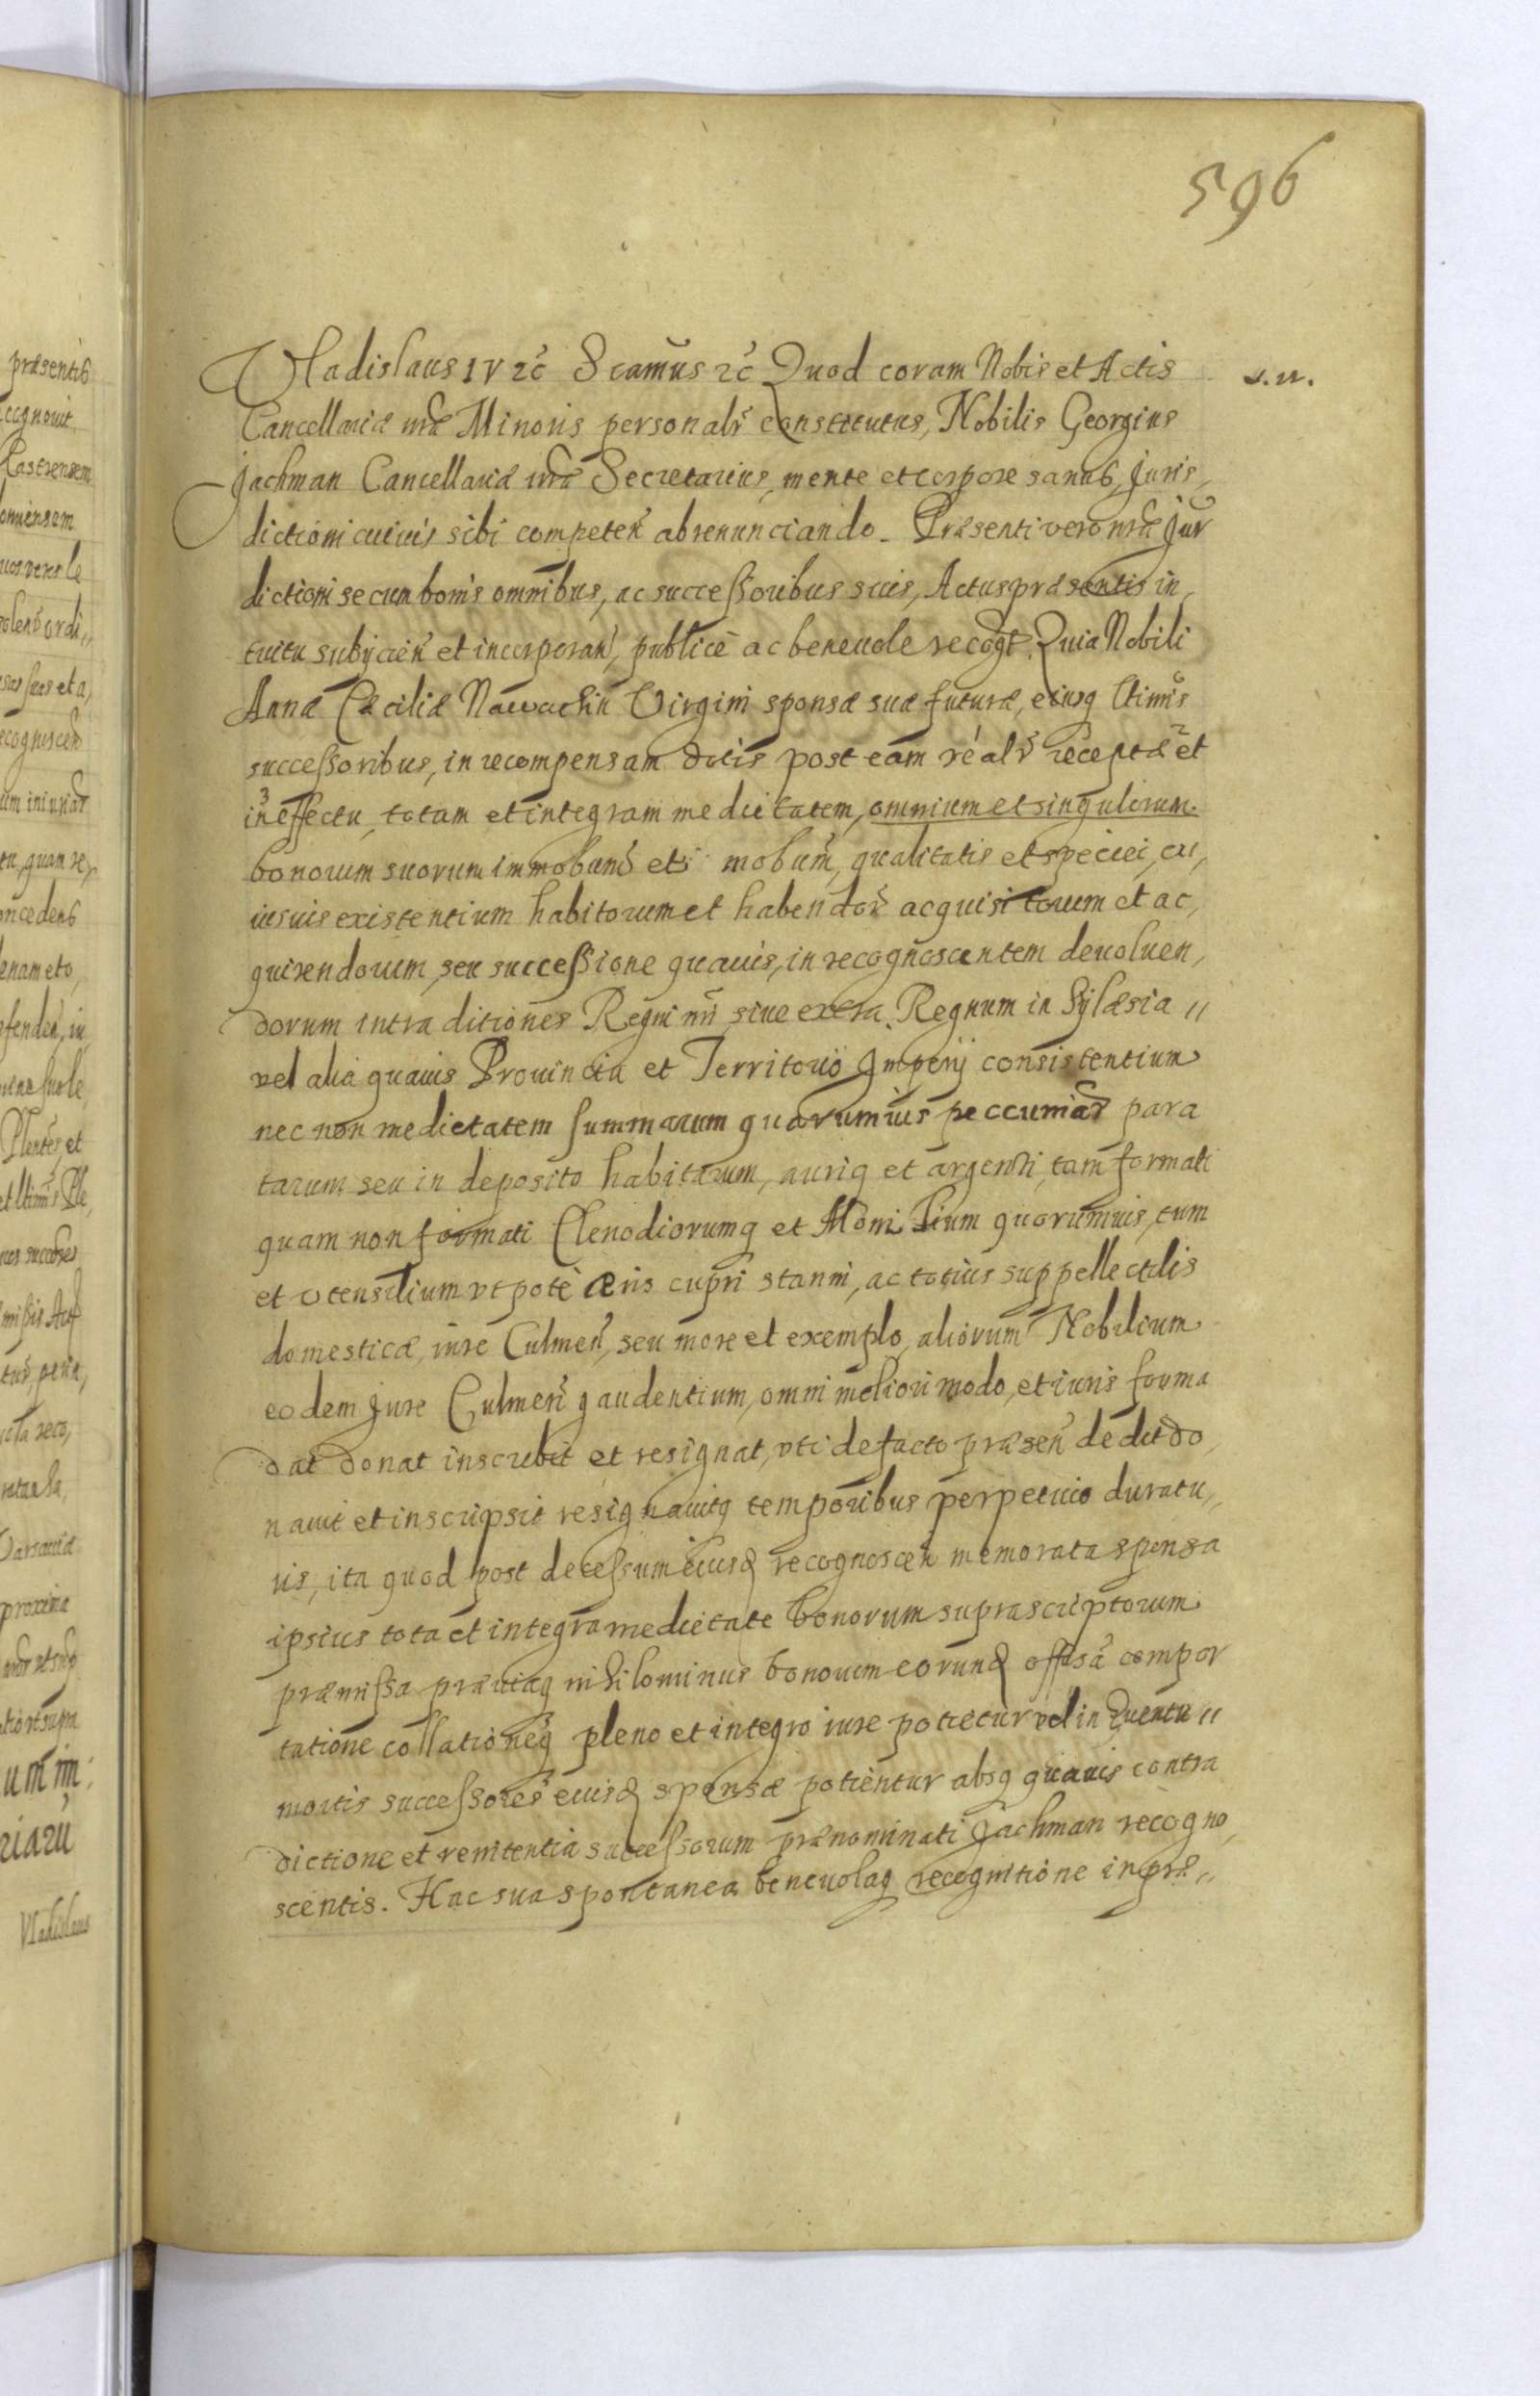 596
Vladislaus IV &c̃ Scamũs &c̃ Quod coram Nobis et Actis
s. n.
Cancellariæ nr̃æ Minoris personalr̃ constitutus, Nobilis Georgius
Jachman Cancellariæ nr̃æ Secretarius, mente et corpore sanus, Juris,
dictioni cuiuis sibi competen̄ abrenunciando. Præsenti vero nr̃æ Jur
dictioni se cum bonis omnibus, ac successoribus suis, Actus præsentis in,
tuitu subijcien̄ et incorporan̄, publicè ac beneuole recogt. Quia Nobili
Annæ Cæciliæ Nawachin Virgini sponsæ suæ futuræ, eiusq ltimis
successoribus, in recompensam dotis post eam realr̃ receptæ et
in effectu, totam et integram medietatem, omnium et singulorum
bonorum suorum immobium̃ et mobium̃, qualitatis et speciei, cu,
iusuis existentium habitorum et habendor̃ acquisitorum et ac,
quirendorum, seu successione quauis, in recognoscentem deuoluen,
dorum intra ditiones Regni nr̃i siue extra Regnum in Sylæsia //
vel alia quauis Prouincia et Territorio Imperij consistentium
nec non medietatem summarum quarumuis peccuniar̃ para
tarum seu in deposito habitarum, auriq et argenti, tam formati
quam non formati Clenodiorumq et Monilium quorumuis, tum
et vtensilium vtpotè æris cupri stanni, ac totius suppellectilis
domesticæ, iure Culmen̄, seu more et exemplo, aliorum Nobilium
eodem Jure Culmen̄ gaudentium, omni meliori modo, et iuris forma
dat donat inscribit et resignat, vti de facto præsen̄ dedit do,
nauit et inscripsit resignauitq temporibus perpetuio duratu,,
ris, ita quod post decessum eiusd recognoscen̄ memorata sponsa
ipsius tota et integra medietate bonorum suprascriptorum
præmissa præuiaq nihilominus bonorum eorund comportatione
tatione collationeq pleno et integro iure potietur vel in euentu //
mortis successores eiusd sponsæ potientur absq quauis contra
dictione et renitentia successorum prænominati Jachman recogno,
scentis. Hac sua spontanea beneuolaq recognitione in præ,,